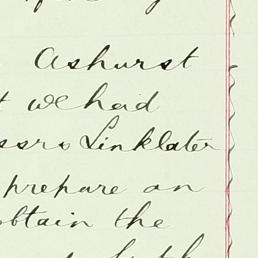 Ashurst
we had
Linklater
prepare an
obtain the